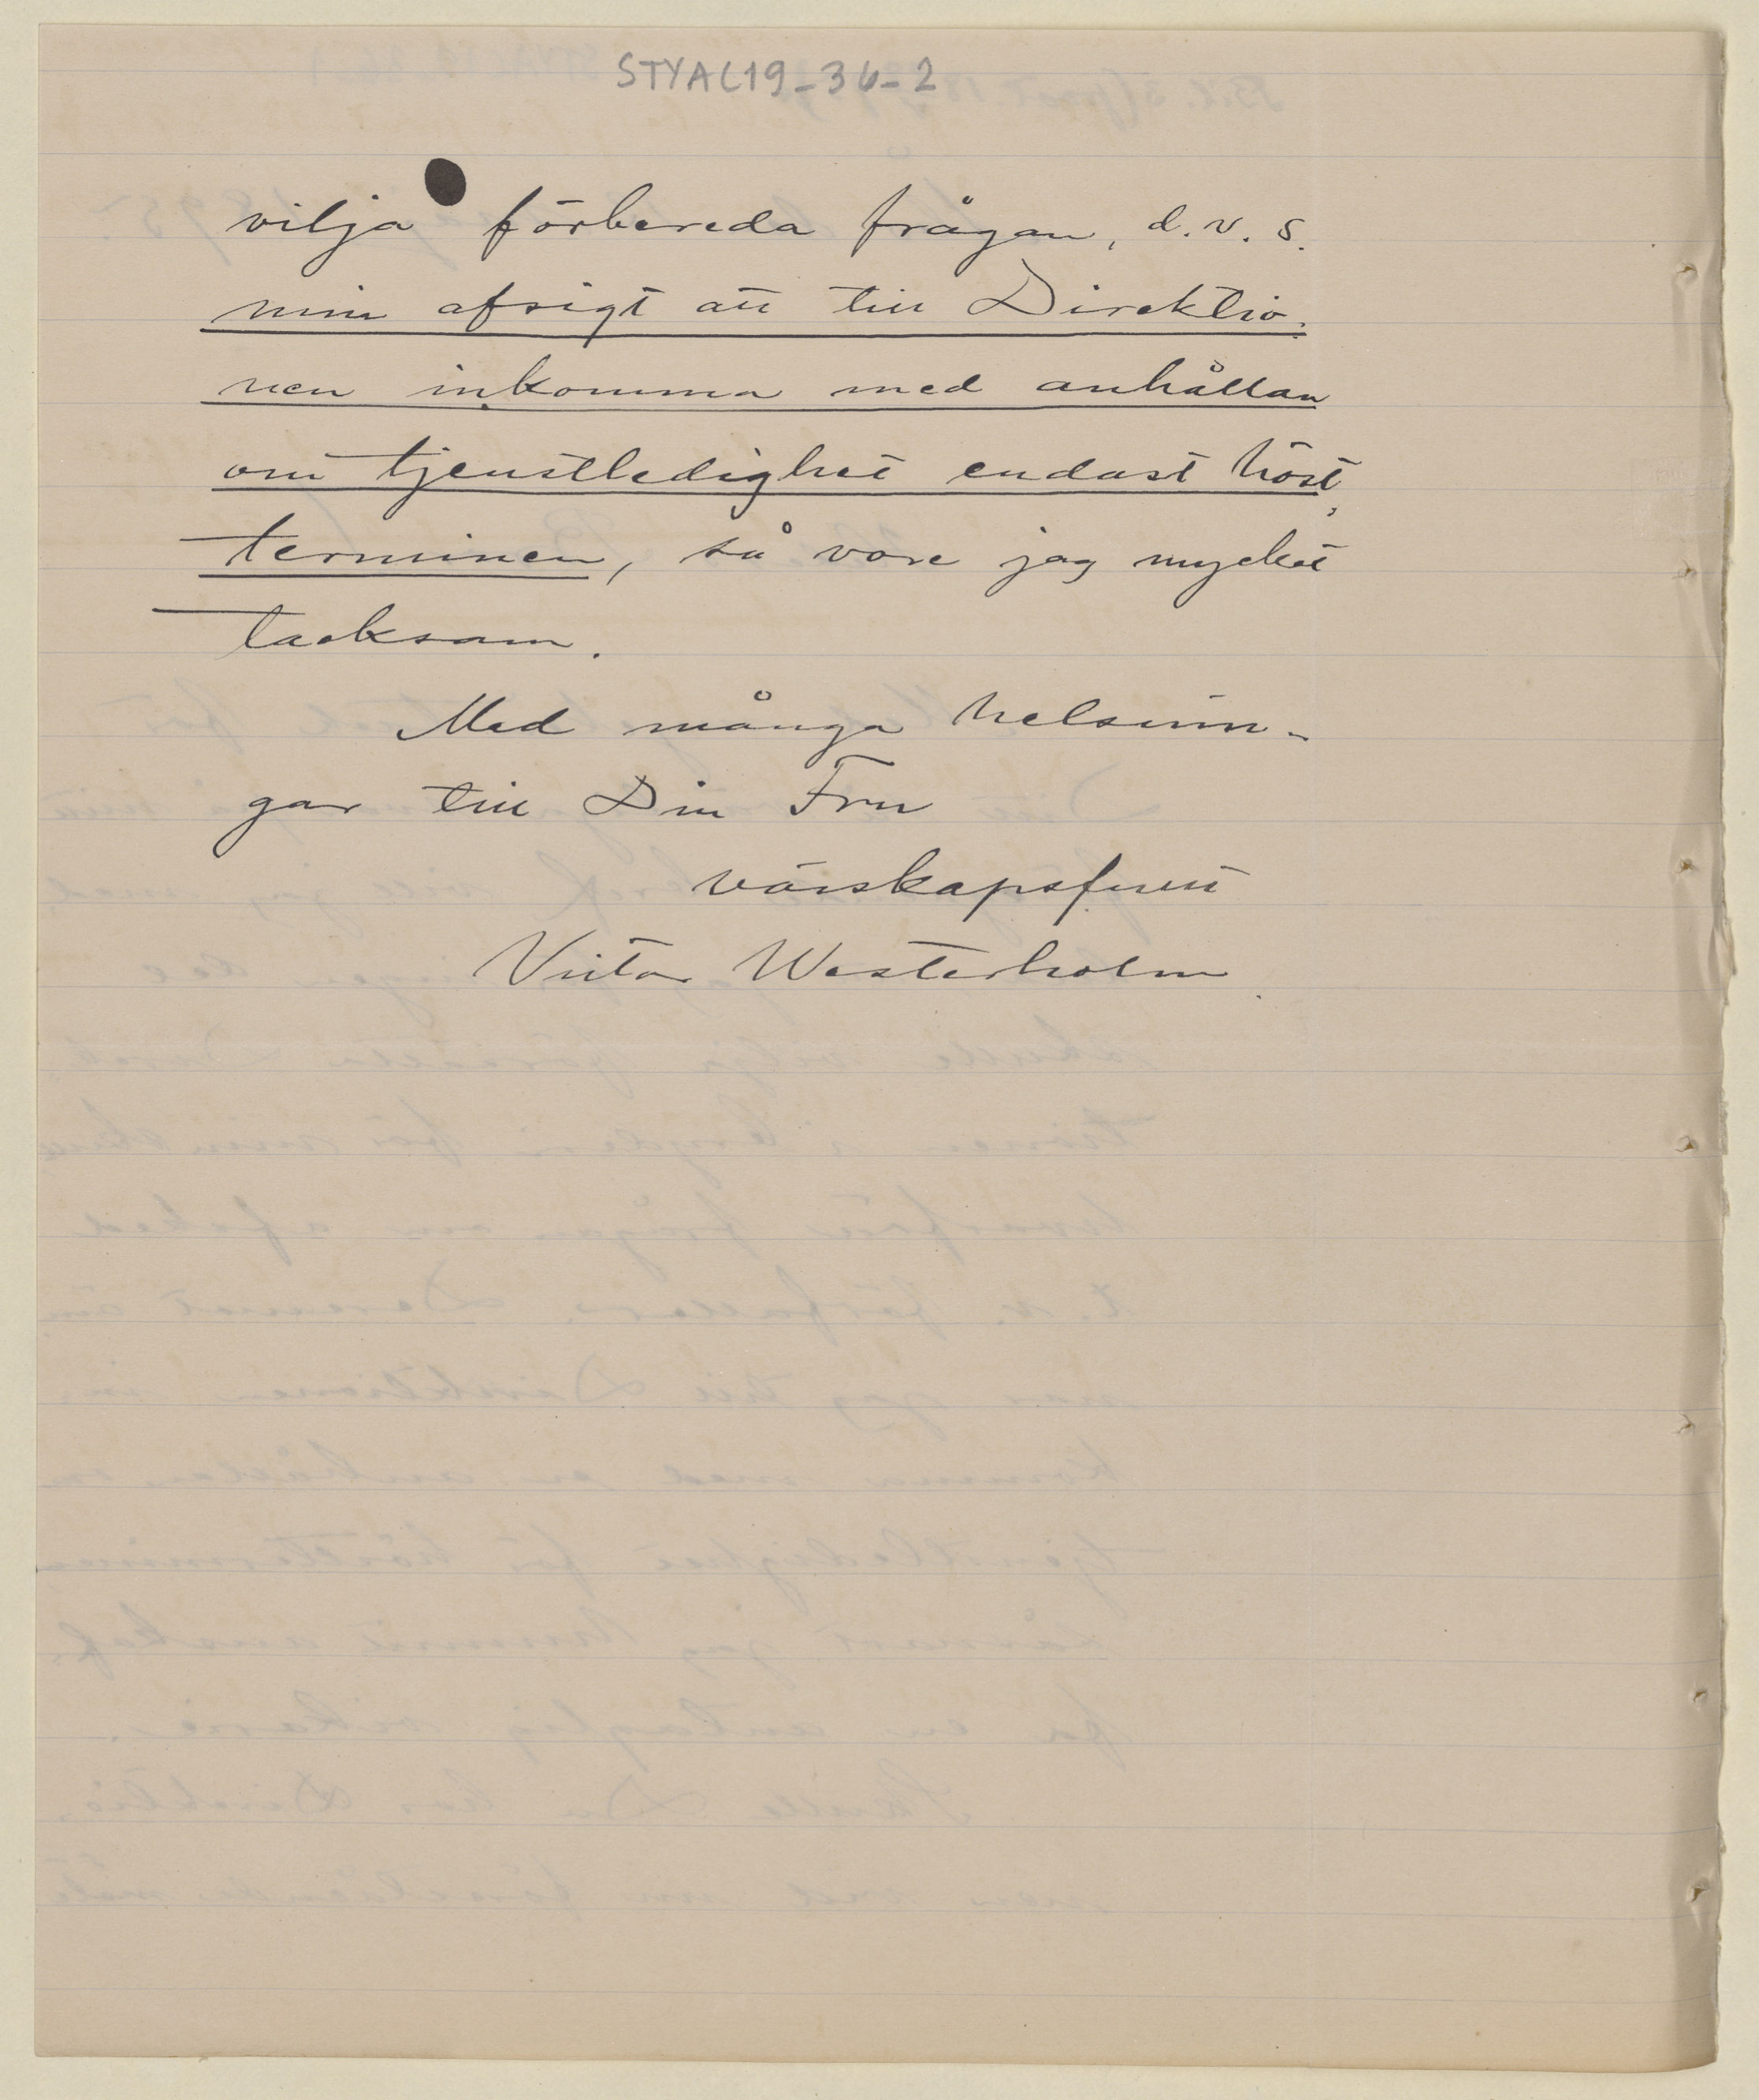 STYAC19-36-2
vilja förbereda frågan, d.v.s.
min afsigt att till Direktio-
nen inkomma med anhållan
om tjenstledighet endast höst-
terminen, så vore jag mycket
tacksam.
Med många helsnin-
gar till Din Fru
vänskapsfullt
Victor Westerholm.